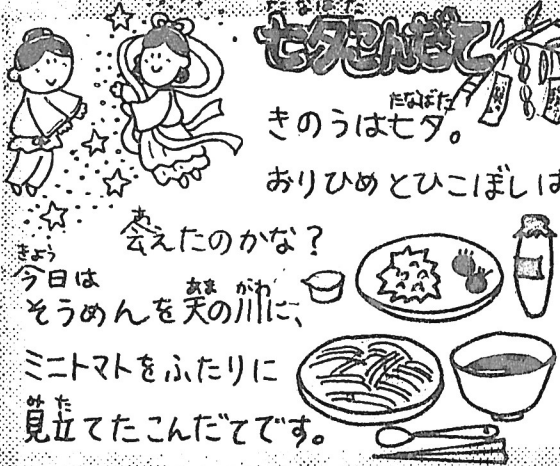 七夕こんだて
きのうは七夕。
おりひめとひこぼしは
会えたのかな？
今日は
そうめんを天の川に、
ミニトマトをふたりに
見立てたこんだてです。